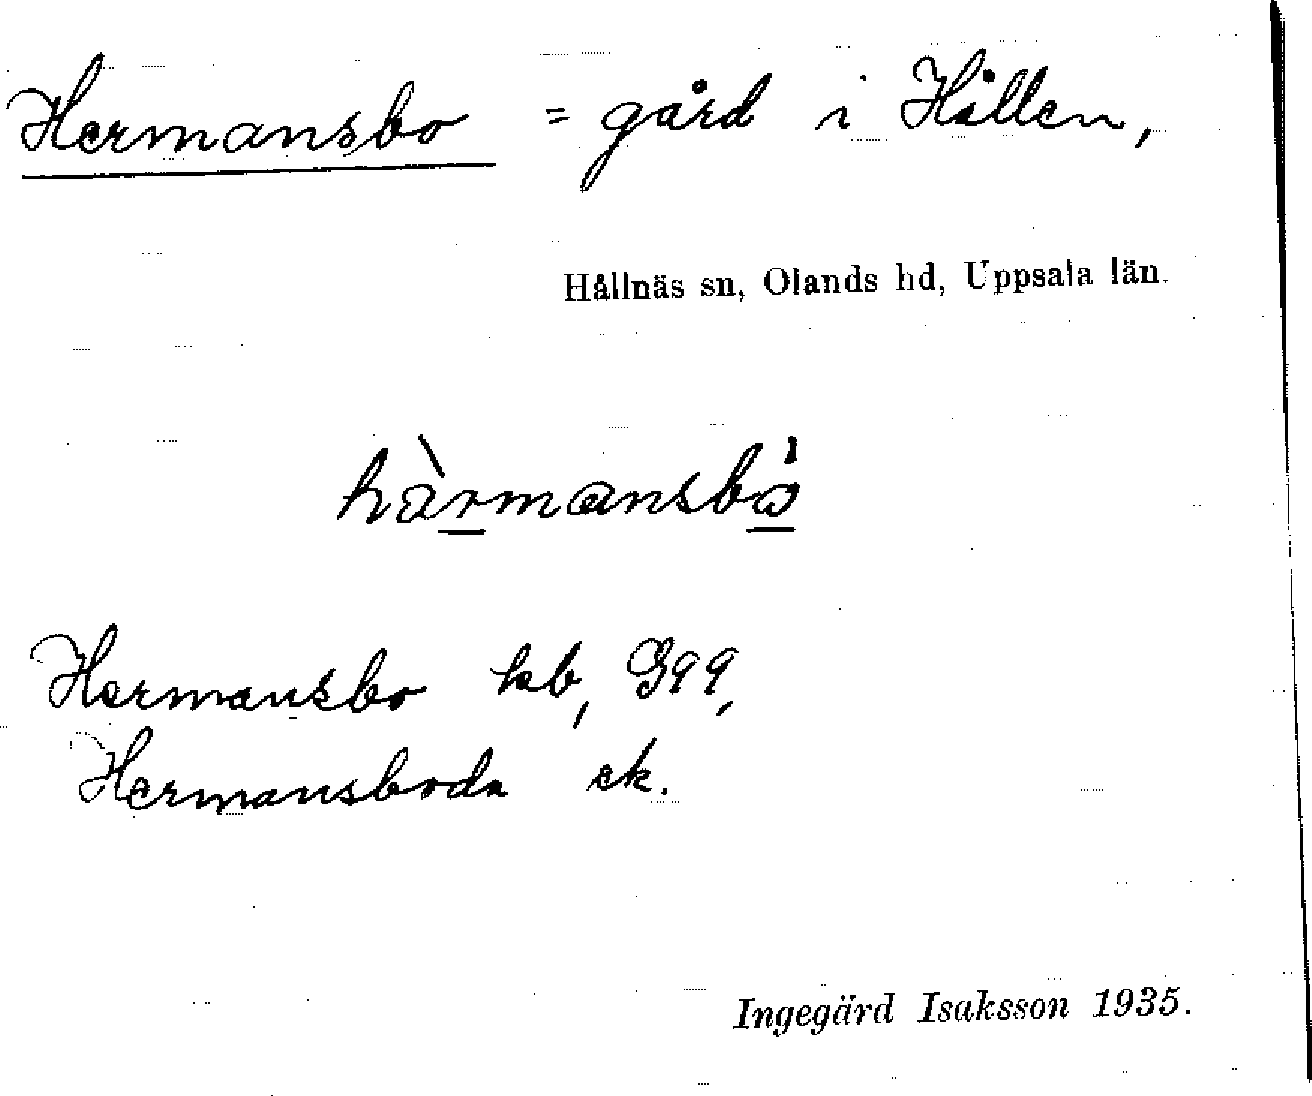 Hermansbo = gård i Hållen,
Hållnäs sn, Olands hd, Uppsala län.
hàrmansbå̀
Hermansbo hb, G99,
Hermansboda ek.
Ingegärd Isaksson 1935.